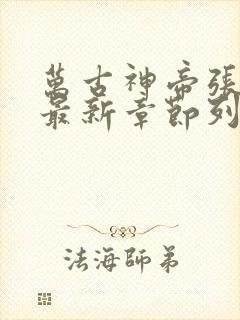 萬古神帝張
最新章節列
法海師弟